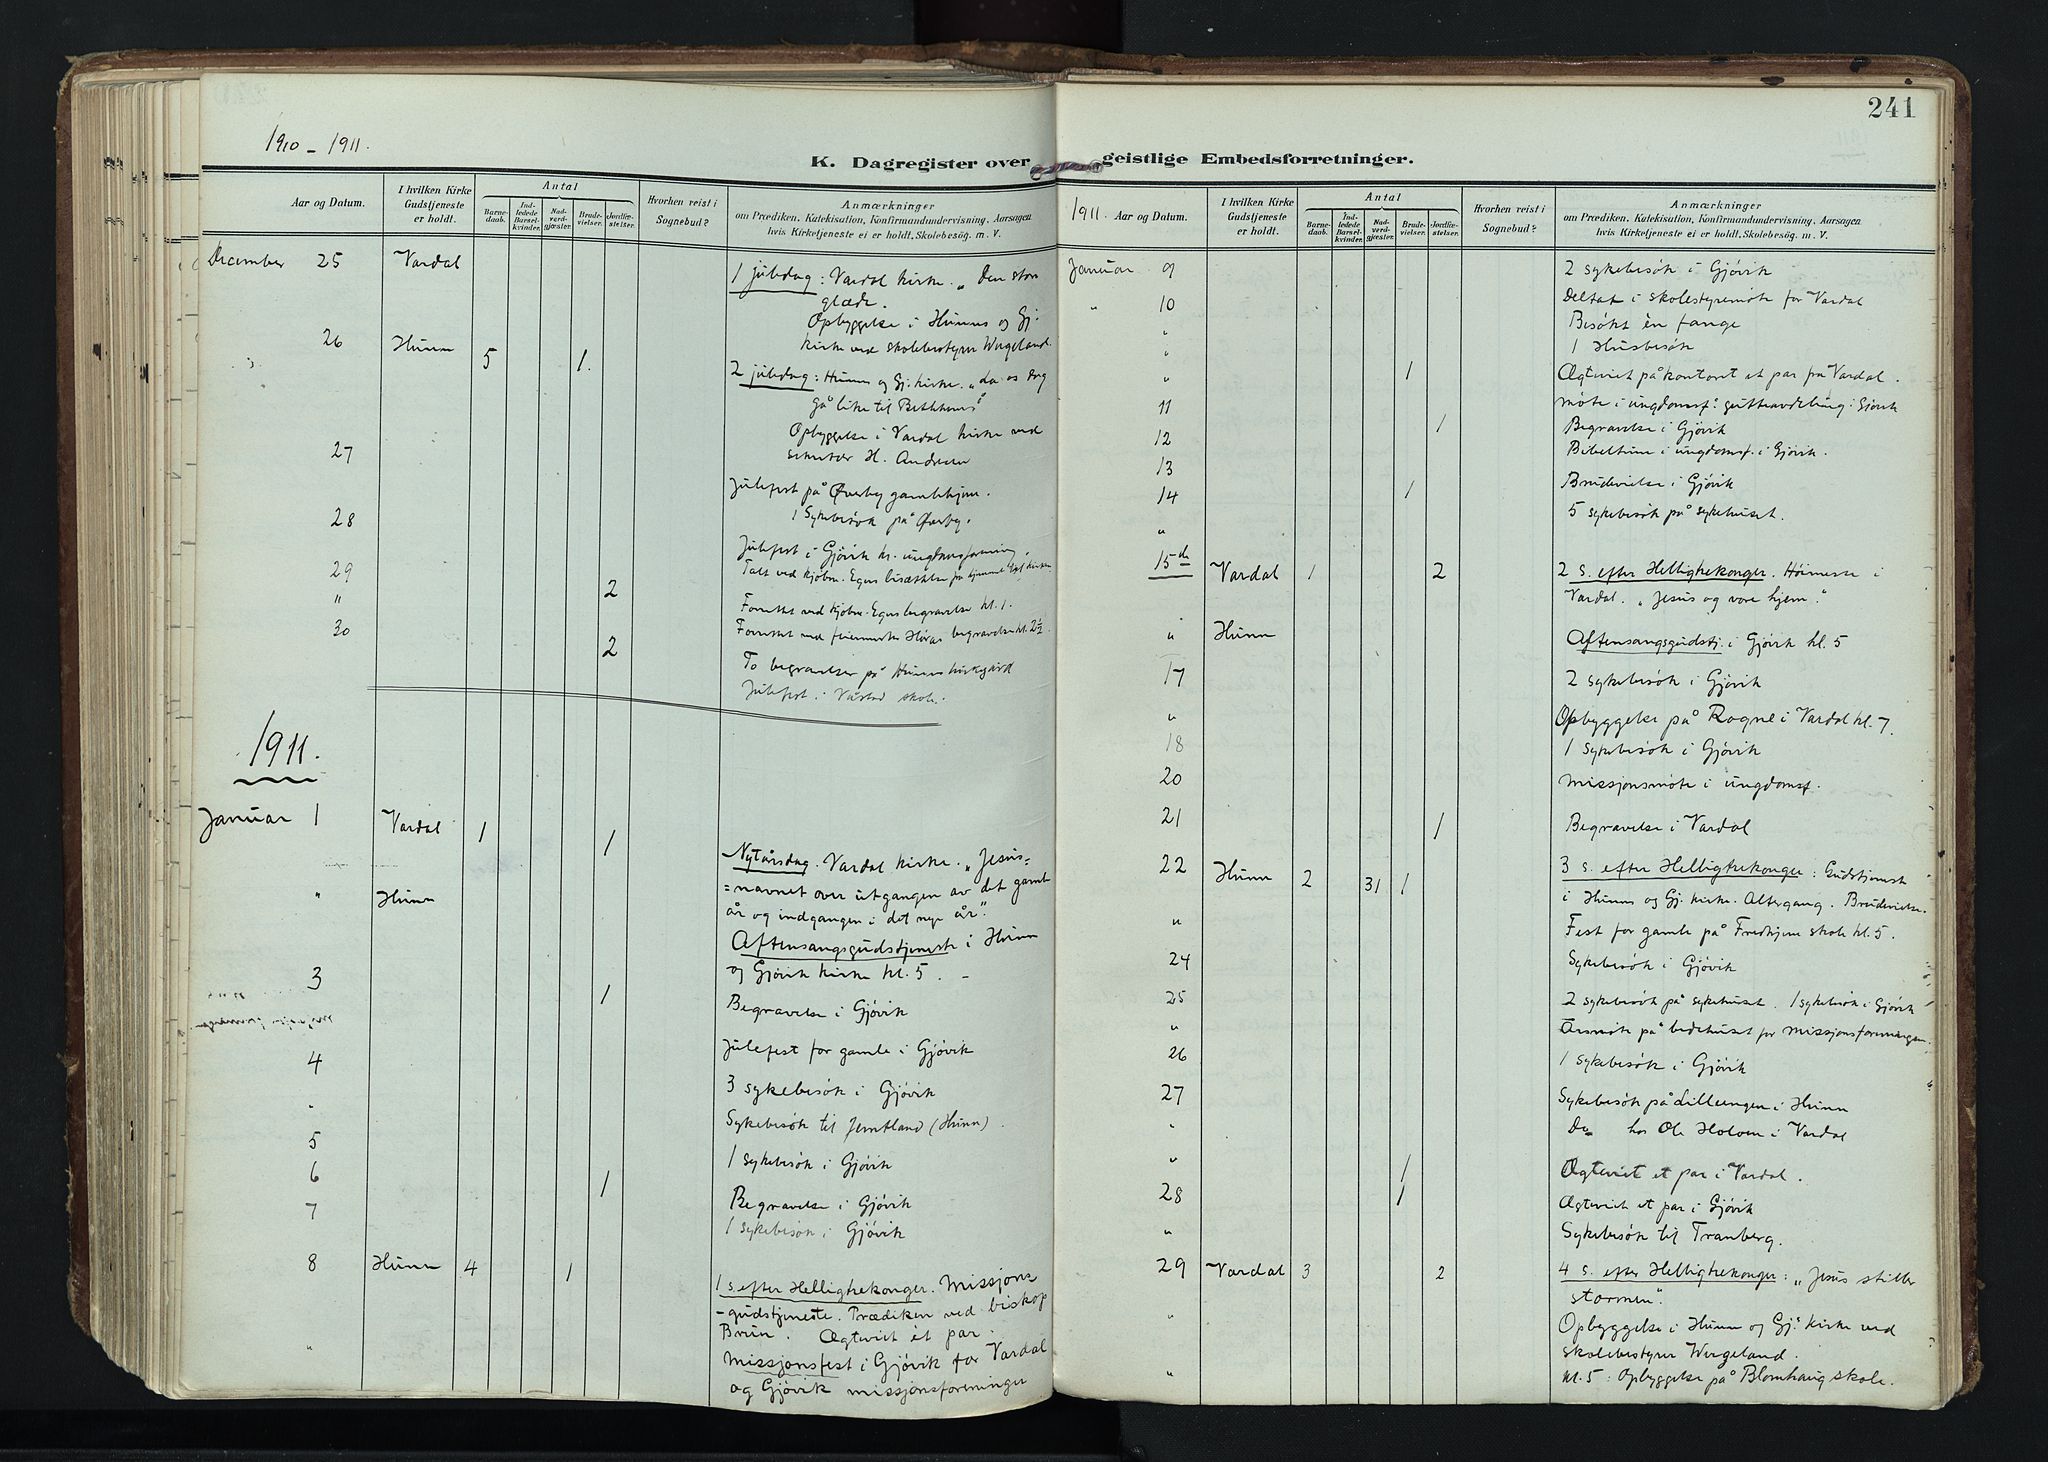 241
1910 - 1911.
K. Dagregister over geistlige Embedsforretninger.
Aar og Datum.
I hvilken Kirke Gudstjeneste er holdt.
Antal
Barnedaab.
Indledede Barselkvinder.
Nadverdgjæster.
Brudevielser.
Jordfæstelser.
Hvorhen reist i Sognebud?
Anmærkninger
om Prædiken, Katekisation, Konfirmandundervisning, Aarsagen
hvis Kirketjeneste ei er holdt, Skolebesög. m. V.
December 25 Vardal 1 juledag: Vardal kirke. "Den store
glæde.
Opbyggelse i Hunns og Gj.
kirke ved skolebestyrer Wergeland.
26 Hunn 5 1. 2 juledag: Hunns og Gj. kirke. "La os
gå like til Bethlehem"
Opbyggelse i Vardal kirke ved
sekretær H. Andresen
27 Julefest på Øverby gamlehjem.
1 Sykebesök på Øverby.
28 Julefest i Gjövik kr. ungdomsforening
29 Talt ved kjöbm. Egers bisættelse fra hjemmet
" 2 Forrettet ved kjöbm. Egers begravelse kl. 1.
30 Forrettet ved begravelse kl. 2½.
2 To begravelser på Hunns kirkegård
Julefest i skole.
1911.
Januar 1 Vardal 1 1 Nytårsdag. Vardal kirke. "Jesus=
=navnet over utgangen av det gamle
år og indgangen i det nye år".
" Hunn Aftensangsgudstjeneste i Hunn
og Gjövik kirke kl. 5. -
3 1 Begravelse i Gjövik
Julefest for gamle i Gjövik
4 3 sykebesök i Gjövik
Sykebesök til Jemtland (Hunn).
5 1 sykebesök i Gjövik
6 1 Begravelse i Gjövik
7 1 sykebesök i Gjövik
8 Hunn 4 1 1 s. efter Helligtrekonger. Missjons
-gudstjeneste. Prædiken ved biskop
Brun. Ægteviet ét par.
" Missjonsfest i Gjövik for Vardal
og Gjövik missjonsforeninger
1911. Aar og Datum.
I hvilken Kirke Gudstjeneste er holdt.
Antal
Barnedaab.
Indledede Barselkvinder.
Nadverdgjæster.
Brudevielser.
Jordfæstelser.
Hvorhen reist i Sognebud?
Anmærkninger
om Prædiken, Katekisation, Konfirmandundervisning, Aarsagen
hvis Kirketjeneste ei er holdt, Skolebesög. m. V.
Januar 9 2 sykebesök i Gjövik
" 10 Deltat i skolestyremöte for Vardal
" Besökt én fange
" 1 Husbesök
" 1 Ægteviet på kontoret et par fra Vardal.
11 möte i ungdomsf. gutteavdeling i Gjövik
12 1 Begravelse i Gjövik
13 Bibeltime i ungdomsf. i Gjövik.
14 1 Brudevielse i Gjövik
" 5 sykebesök på sykehuset.
15de Vardal 1 2 2 s. efter Helligtrekonger. Höimesse i
Vardal. "Jesus og vore hjem."
" Hunn Aftensangsgudstj. i Gjövik kl. 5
17 2 sykebesök i Gjövik
" Opbyggelse på Rogne i Vardal kl. 7.
18 1 sykebesök i Gjövik
20 Missjonsmöte i ungdomsf.
21 1 Begravelse i Vardal
22 Hunn 2 31 1 3 s. efter Helligtrekonger: Gudstjeneste
i Hunns og Gj. kirke. Altergang. Brudevielse.
" Fest for gamle på Fredhjem skole kl. 5.
24 Sykebesök i Gjövik
25 2 sykebesök på sykehuset. 1 sykebesök i Gjövik
" Årsmöte på bedehuset for missjonsforeningen.
26 1 sykebesök i Gjövik
27 Sykebesök på Lilleengen i Hunn
" Do hos Ole Holoen i Vardal
" 1 Ægteviet et par i Vardal.
28 1 Ægteviet et par i Gjövik
" Sykebesök til Tranberg.
29 Vardal 3 2 4 s. efter Helligtrekonger: "Jesus stiller
stormen".
" Opbyggelse i Hunn og Gj. kirke ved
skolebestyrer Wergeland.
" kl. 5: Opbyggelse på Blomhaug skole.